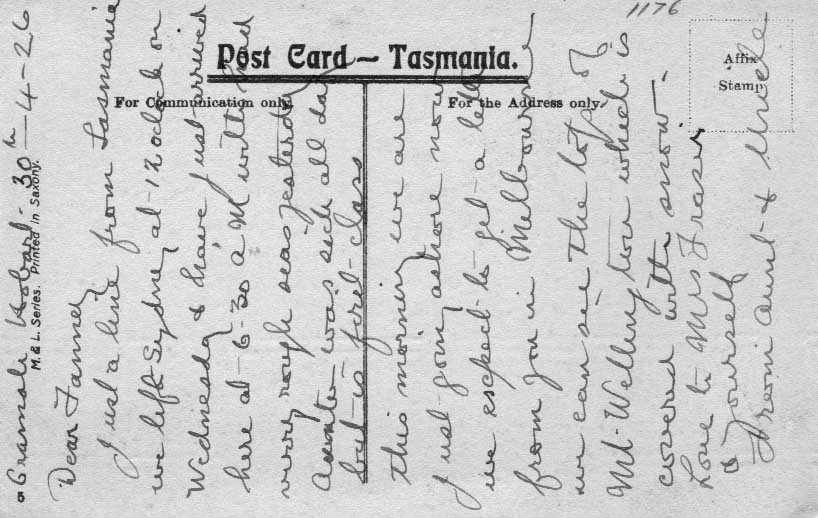 1176
Post Card – Tasmania.
For Communication only.
For the Address only.
Affix
Stamp
M. & L. Series. Printed in Saxony.
Hobart 30th–4–26
Dear Fanney
Just a line from Tasmania
we left Sydney at 12 oclock on
Wednesday & have just arrived
here at 6-30 A M with had
verry rough seas yesterday
Aunty was sick all day
but is first class
this morning we are
just going ashore now
we expect to get a letter
from you in Melbourne
we can see the top of
Mt Wellington which is
covered with snow.
Love to Mrs Fraser
& yourself
From Aunt & Uncle